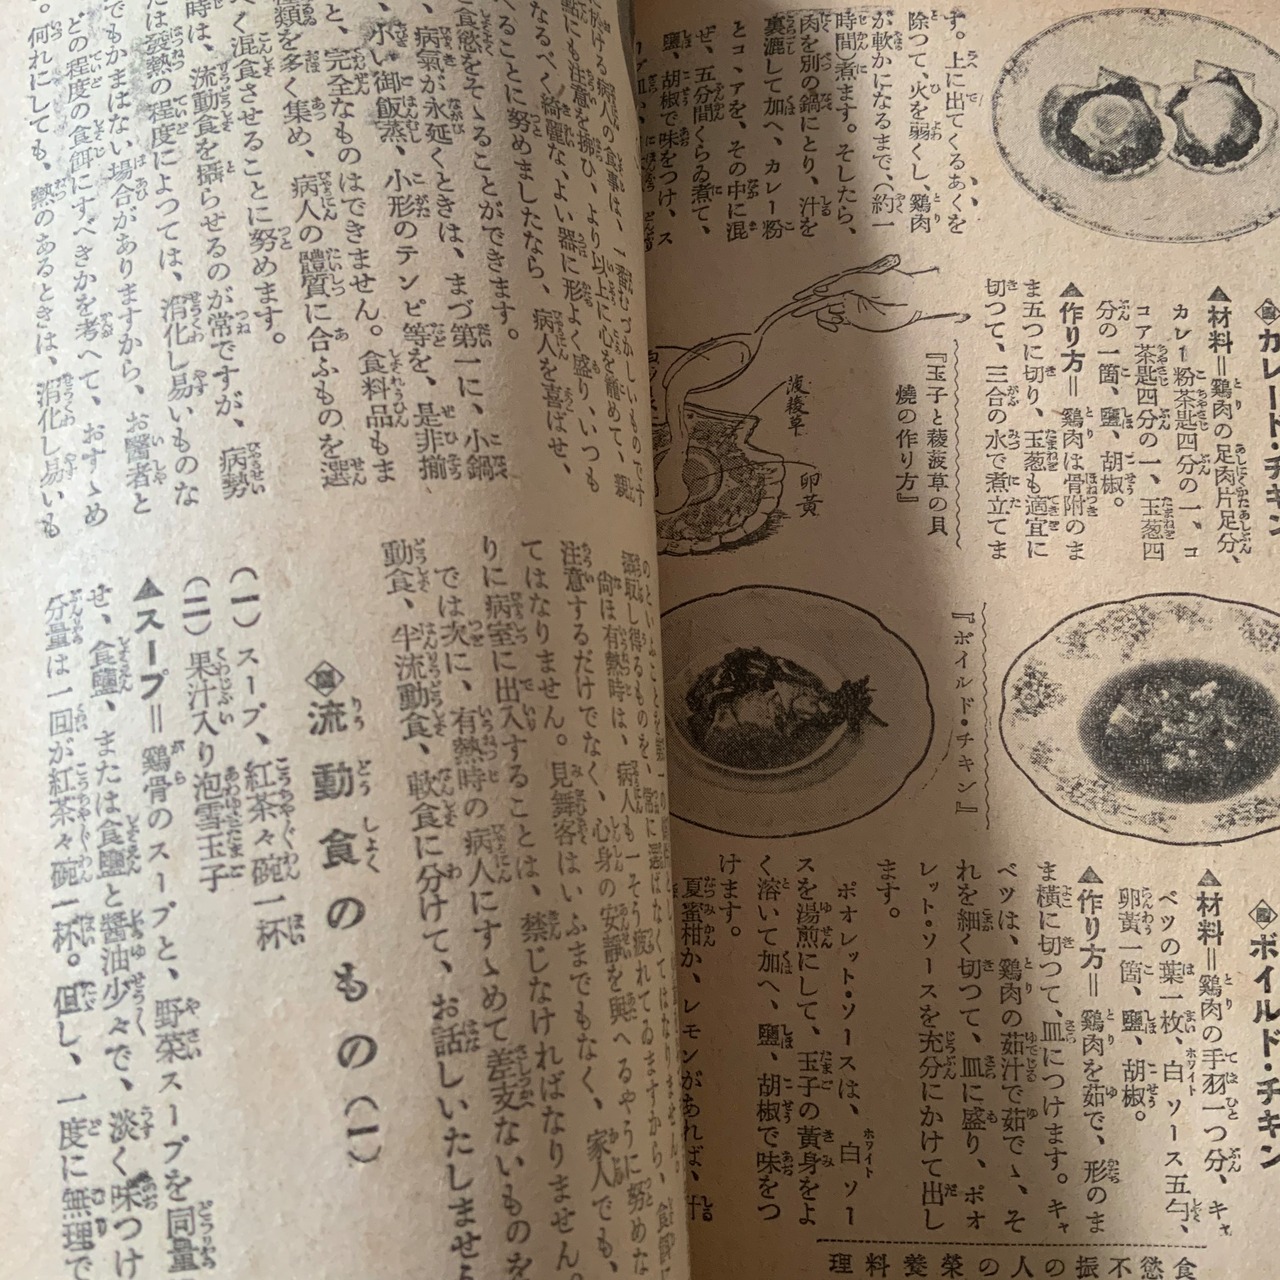 す。上に出てくるあくを
除つて、火を弱くし、鷄肉
が軟かになるまで、(約一
時間)煮ます。そしたら、
肉を別の鍋にとり、汁を
裏漉して加へ、カレー粉
とコヽアを、その中に混
ぜ、五分間くらゐ煮て、
鹽、胡椒で味をつけ、ス
カレード・チキン
▲材料=鷄肉の足肉片足分、
カレー粉茶匙四分の一、コ
コア茶匙四分の一、玉葱四
分の一箇、鹽、胡椒。
▲作り方=鷄肉は骨附のま
ま五つに切り、玉葱も適宜に
切つて、三合の水で煮立てま
『玉子と菠薐草の貝
燒の作り方』
菠薐草
卵黄
『ボイルド・チキン』
ボイルド・チキン
▲材料=鷄肉の手羽一つ分、キャ
ベツの葉一枚、白ソース五勺、
卵黄一箇、鹽、胡椒。
▲作り方=鷄肉を茹で、形のま
ま横に切つて、皿につけます。キャ
ベツは、鷄肉の茹汁で茹でヽ、そ
れを細く切つて、皿に盛り、ポオ
レット・ソースを充分にかけて出し
ます。
ポオレット・ソースは、白ソー
スを湯煎にして、玉子の黄身をよ
く溶いて加へ、鹽、胡椒で味をつ
けます。
夏蜜柑か、レモンがあれば、汁
食慾不振の人の榮養料理
病人の食事は、一番むつかしいものです
點にも注意を拂ひ、より以上に心を籠めて、親
なるべく綺麗な、よい器に形よく盛り、いつも
へることに努めましたなら、病人を喜ばせ、
食慾をそゝることができます。
病氣が永延くときは、まづ第一に、小鍋
小い御飯蒸、小形のテンピ等を、是非揃
と、完全なものはできません。食料品もま
種類を多く集め、病人の體質に合ふものを選
く混食させることに努めます。
時は、流動食を攝らせるのが常ですが、病勢
は發熱の程度によつては、消化し易いものな
でもかまはない場合がありますから、お醫者と
どの程度の食餌にすべきかを考へて、おすゝめ
。何れにしても、熱のあるときは、消化し易いも
攝取し得るものを、常に選ばなくてはなりません。
尚ほ有熱時は、病人も一そう疲れてゐますから、食餌に
注意するだけでなく、心身の安靜を與へるやうに努めな
てはなりません。見舞客はいふまでもなく、家人でも、
りに病室に出入することは、禁じなければなりません。
では次に、有熱時の病人にすゝめて差支ないものを
動食、半流動食、軟食に分けて、お話しいたしませう
流動食のもの(一)
(一)スープ、紅茶々碗一杯
(二)果汁入り泡雪玉子
▲スープ=鷄骨のスープと、野菜スープを同量
せ、食鹽、または食鹽と醬油少々で、淡く味つけ
分量は一回が紅茶々碗一杯。但し、一度に無理で